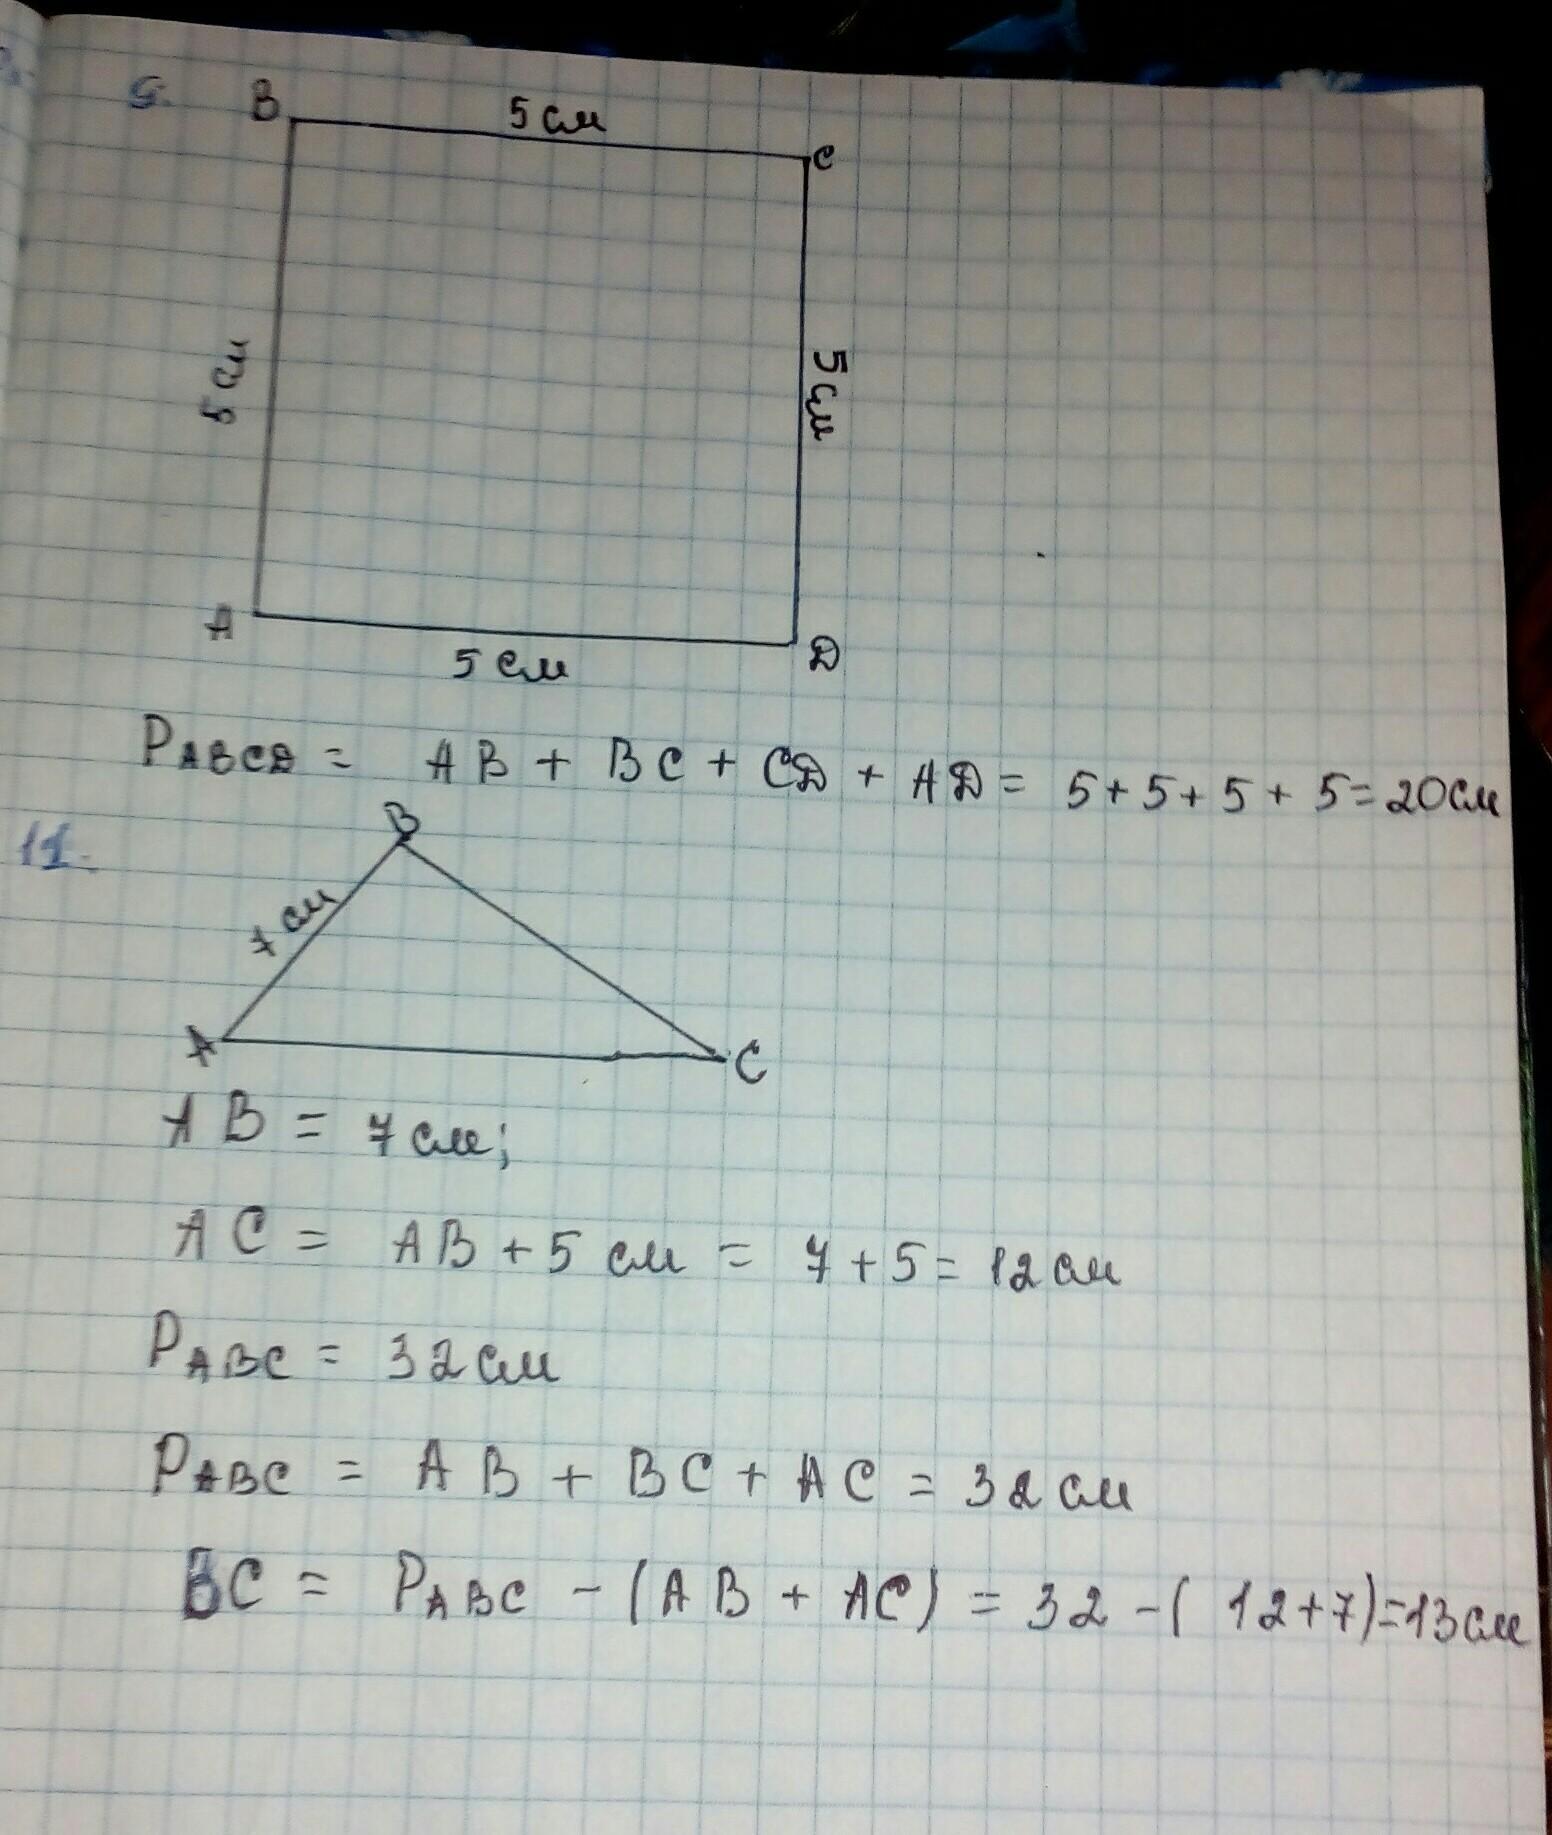 9.
B
5 см
C
5 см
5 см
A
5 см
D
PABCD = AB + BC + CD + AD = 5 + 5 + 5 + 5 = 20 см
11.
B
7 см
A
C
AB = 7 см;
AC = AB + 5 см = 7 + 5 = 12 см
PABC = 32 см
PABC = AB + BC + AC = 32 см
BC = PABC - (AB + AC) = 32 - (12+7)=13 см